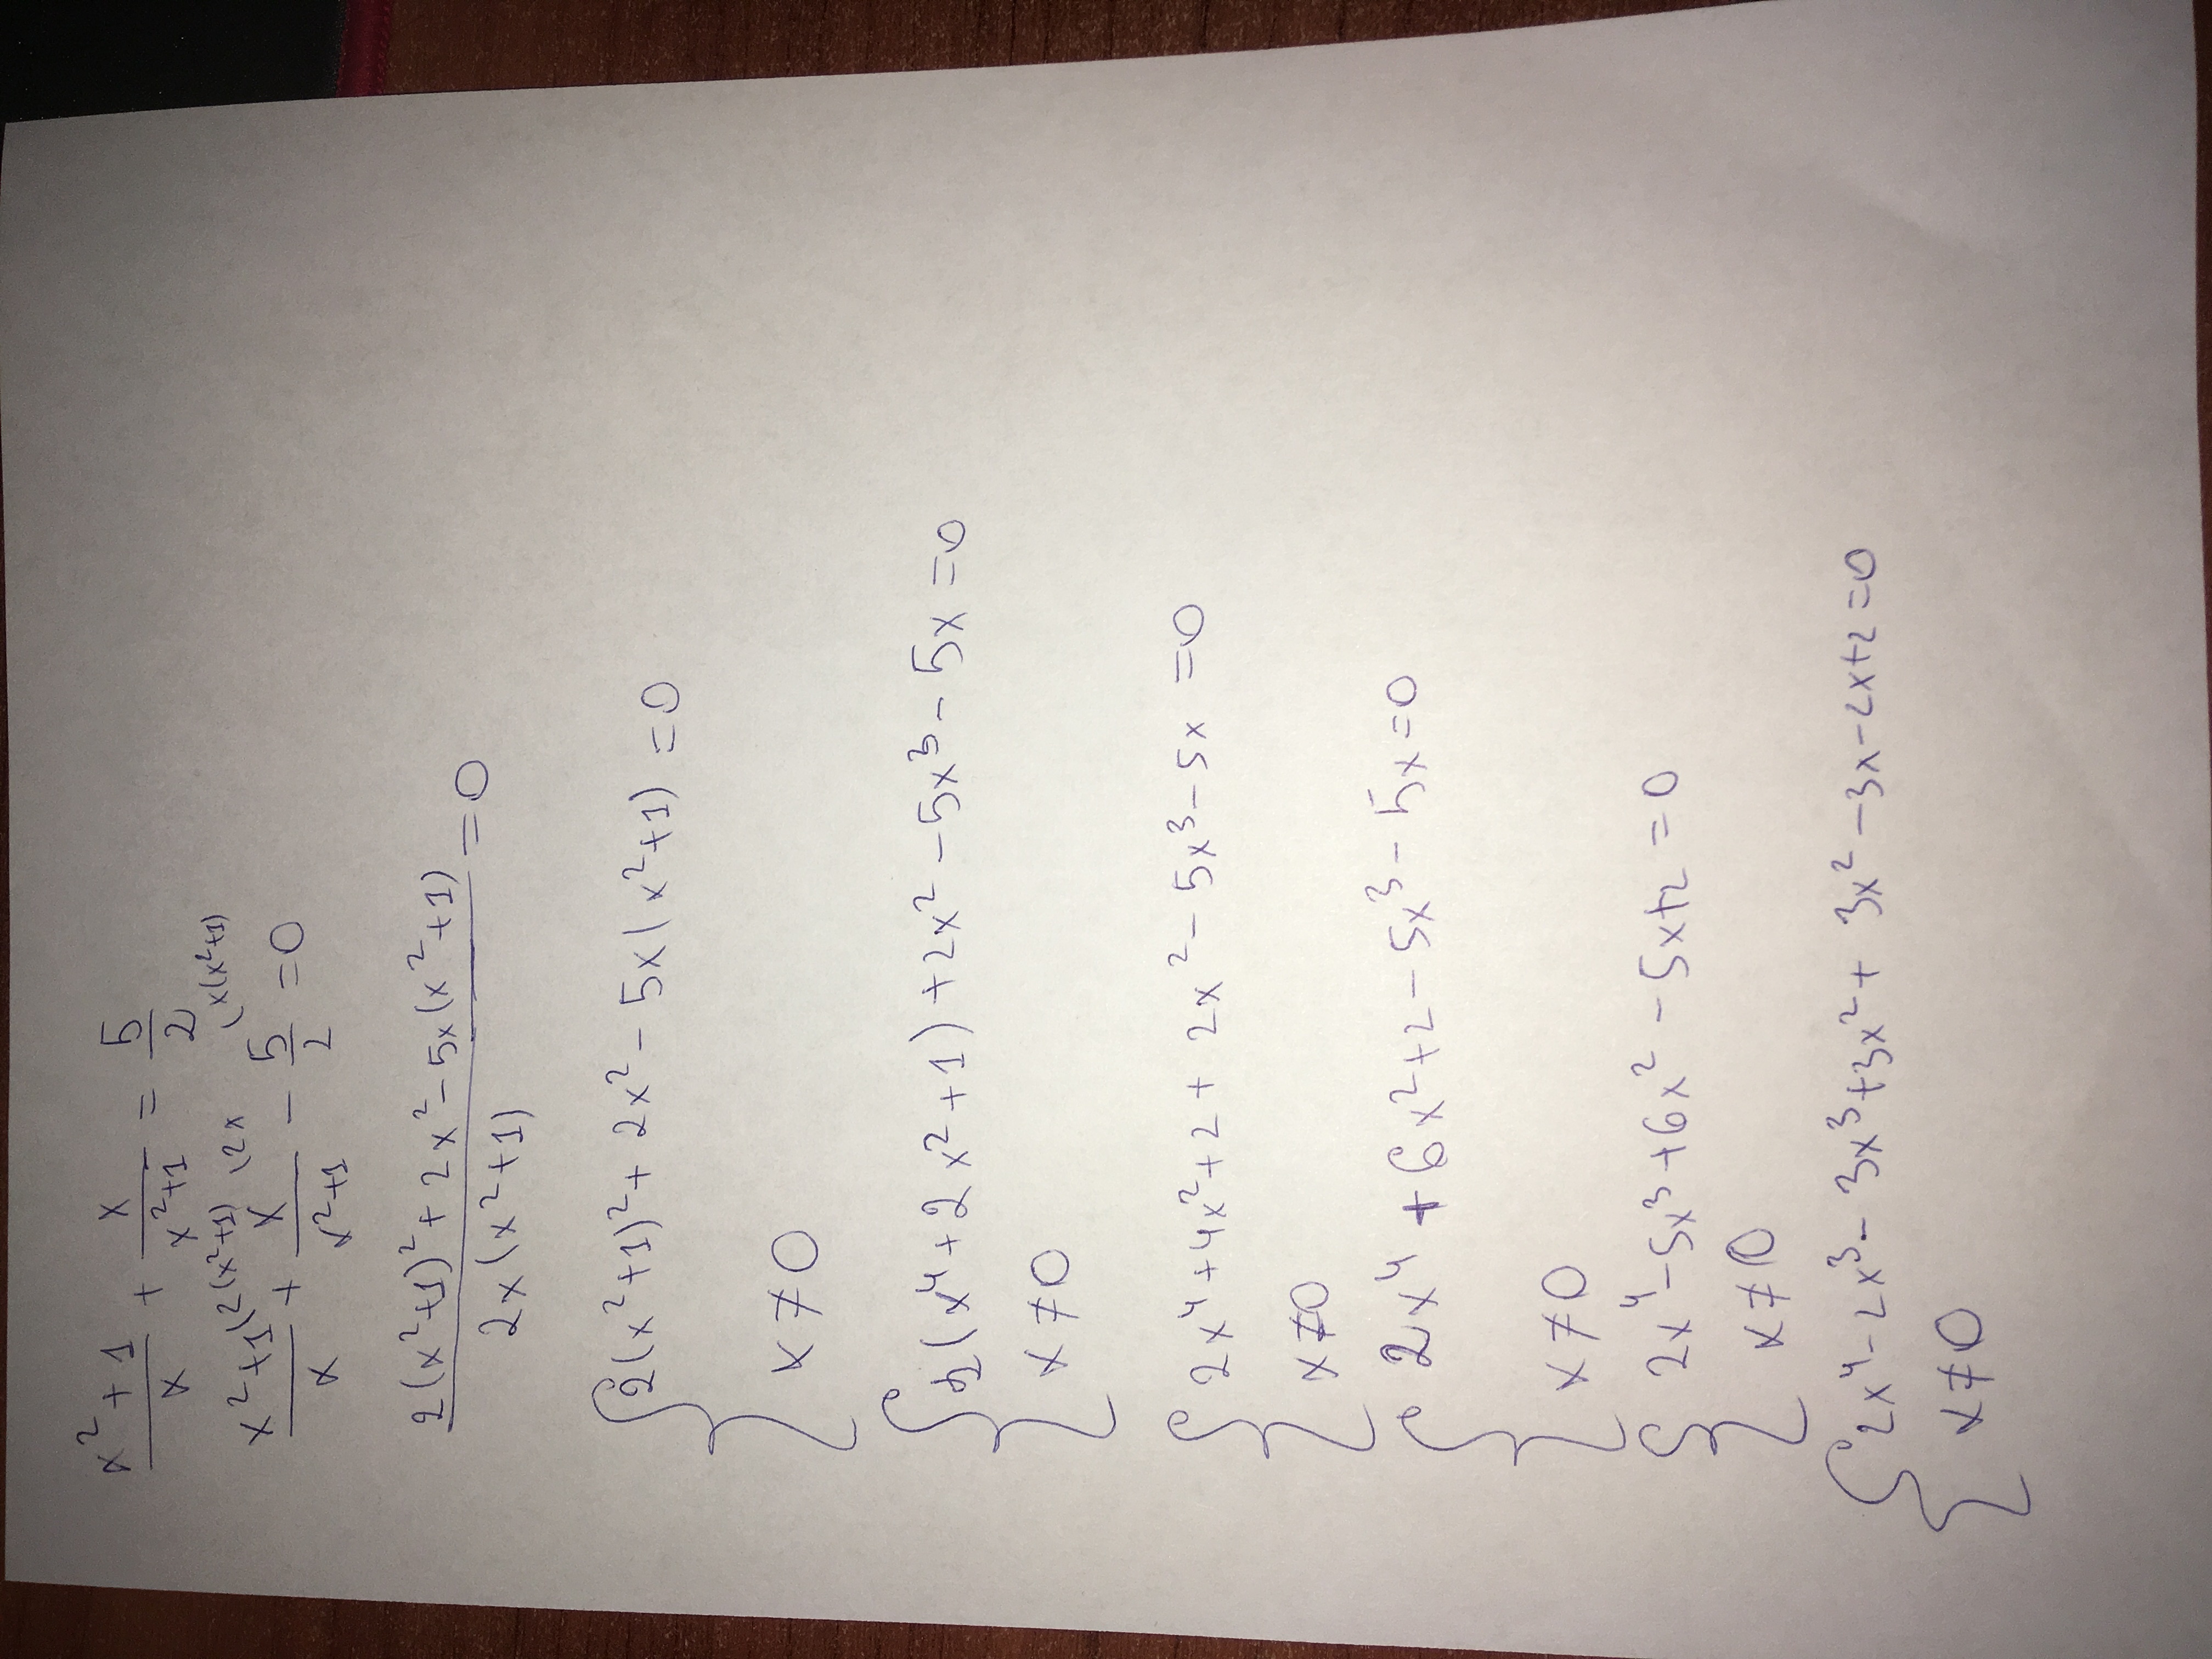 x²+1/x + x/x²+1 = 5/2
x²+1\2(x²+1)/x + x\2x/x²+1 - 5\x(x²+1)/2 =0
2(x²+1)²+2x²-5x(x²+1)/2x(x²+1) =0
{2(x²+1)²+2x²-5x(x²+1)=0
x≠0
{2(x⁴+2x²+1)+2x²-5x³-5x=0
x≠0
{2x⁴+4x²+2+2x²-5x³-5x=0
x≠0
{2x⁴+6x²+2-5x³-5x=0
x≠0
{2x⁴-5x³+6x²-5x+2=0
x≠0
{2x⁴-2x³-3x³+3x²+3x²-3x-2x+2=0
x≠0